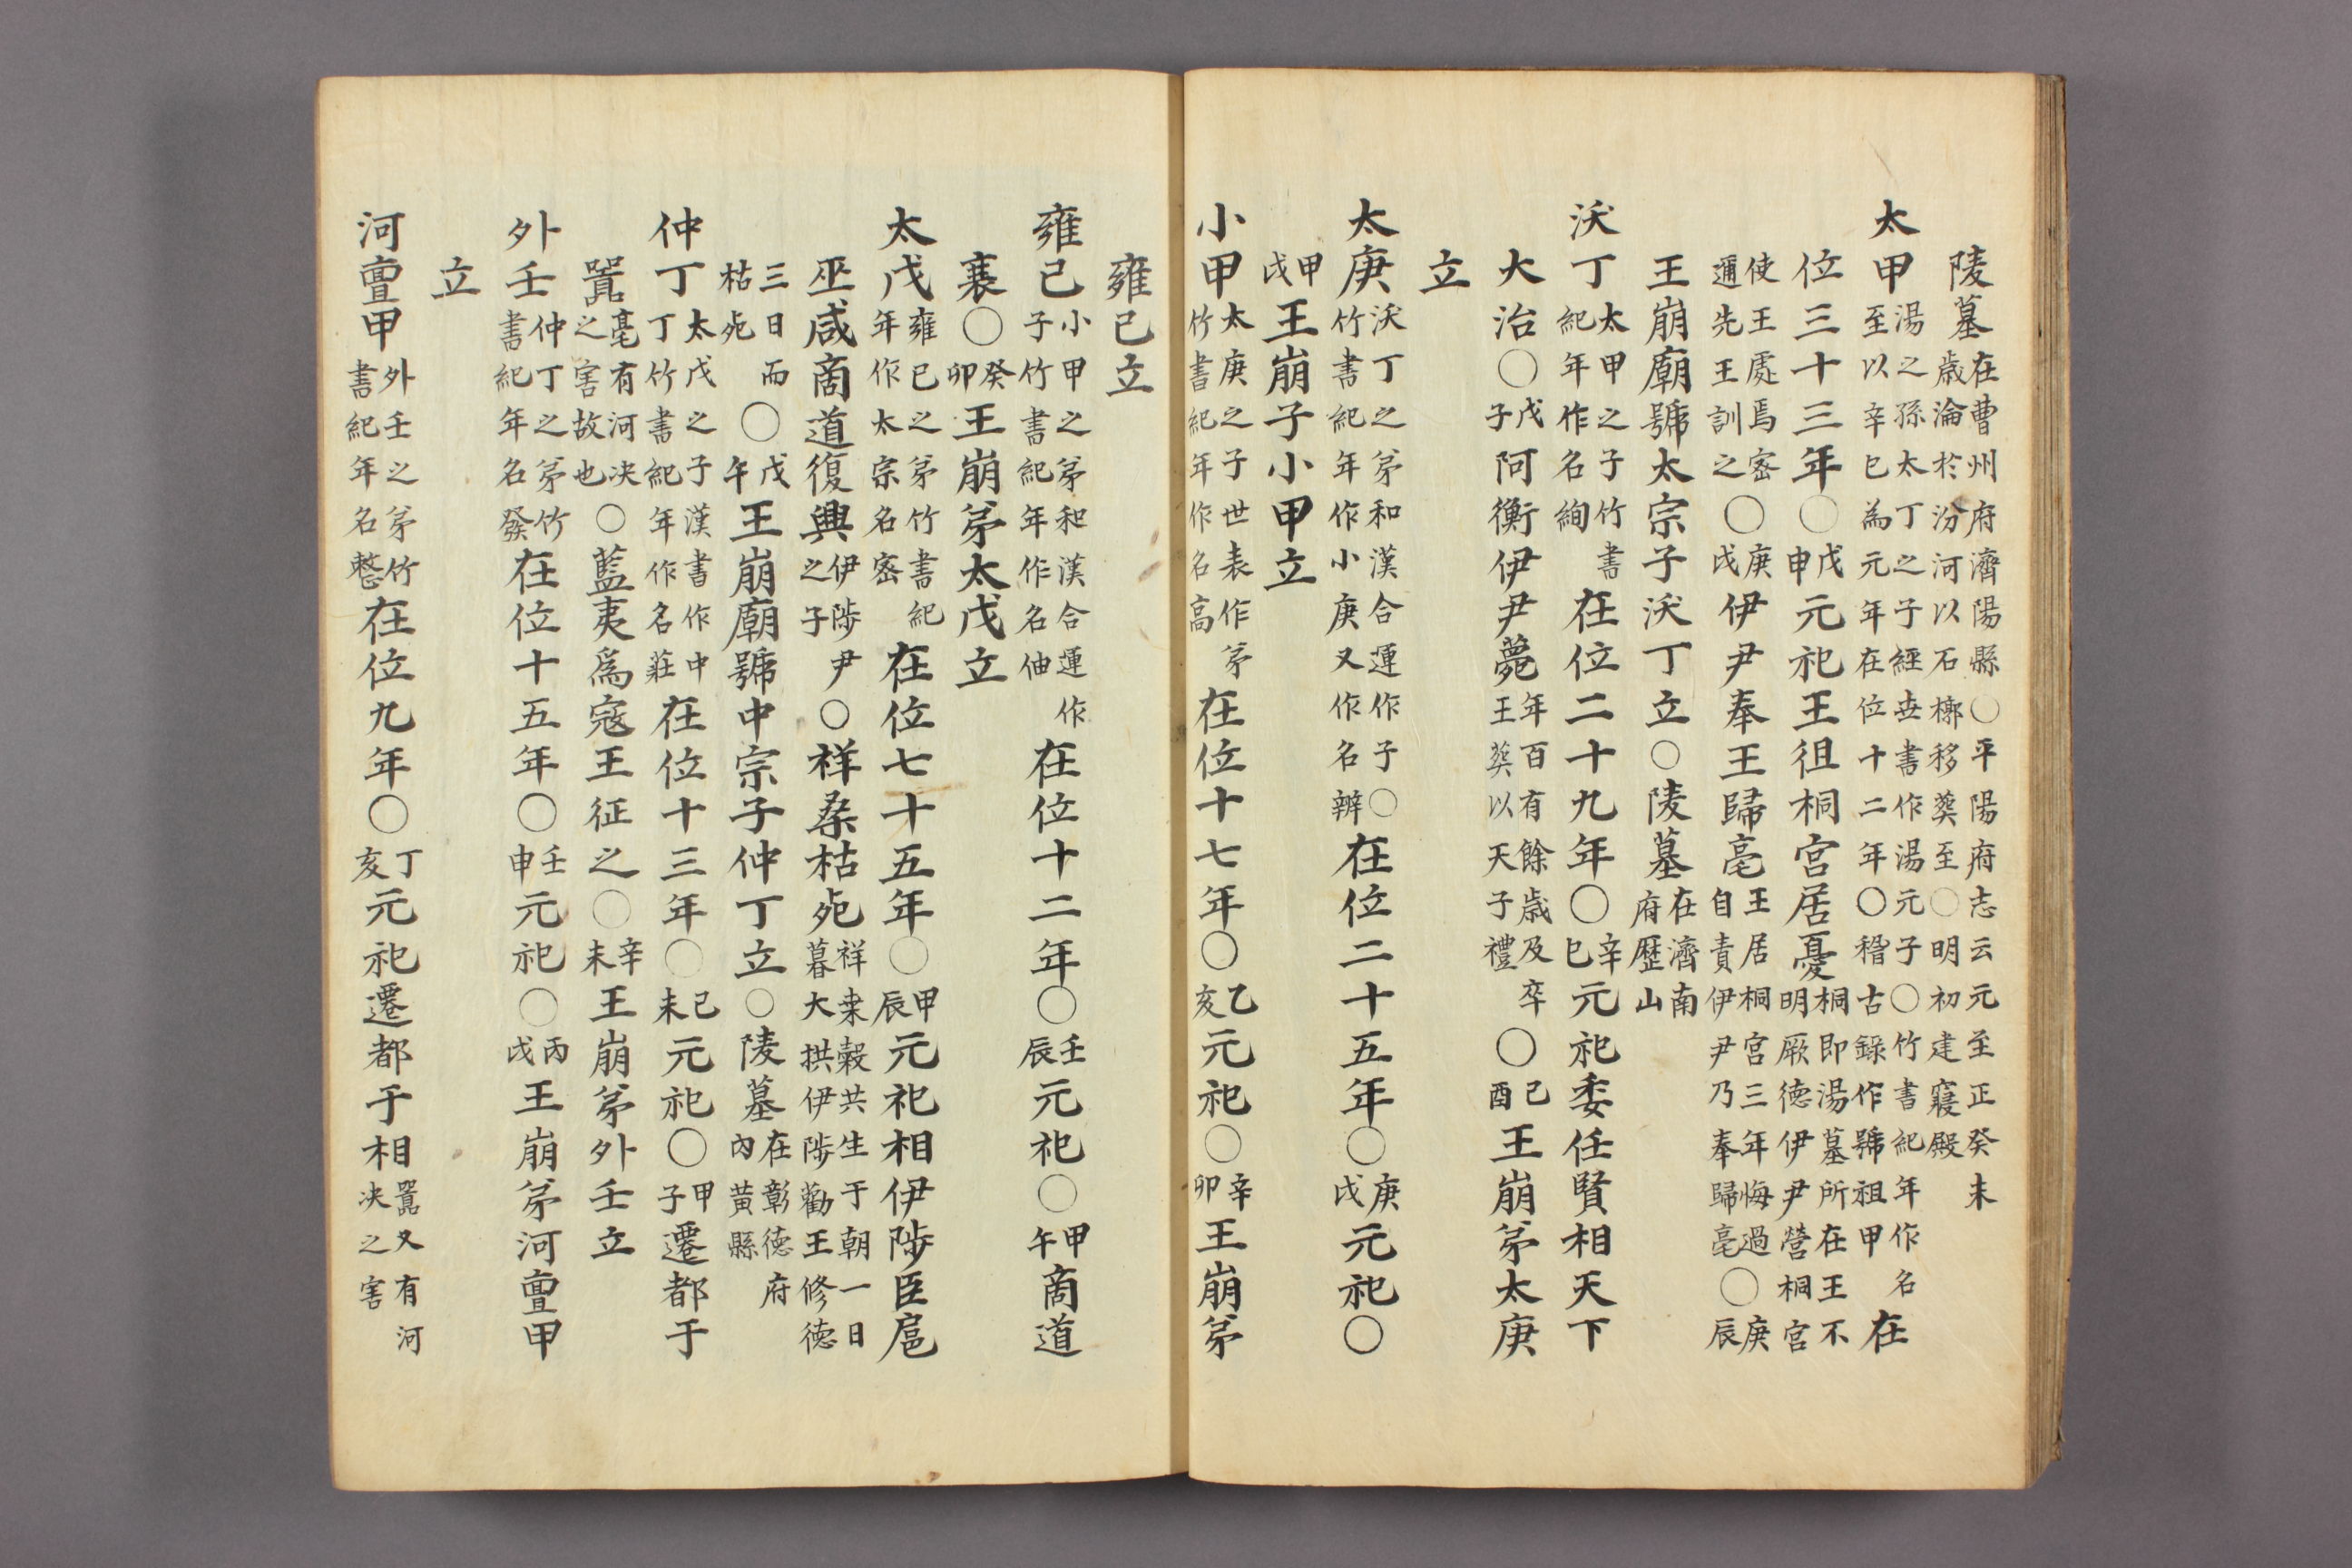 陵墓在曹州府濟陽縣○平陽府志云元至正癸未歲淪於汾河以石槨移葬至○明初建寢殿
太甲湯之孫太丁之子經世書作湯元子○竹書紀年作名至以辛巳為元年在位十二年○稽古錄作號祖甲在
位三十三年○戊申元祀王徂桐宮居憂桐即湯墓所在王不明厥德伊尹營桐宮
使王處焉密邇先王訓之○庚戌伊尹奉王歸亳王居桐宮三年悔過自責伊尹乃奉歸亳○庚辰
王崩廟號太宗子沃丁立○陵墓在濟南府歷山
沃丁太甲之子竹書紀年作名絢在位二十九年○辛巳元祀委任賢相天下
大治○戊子阿衡伊尹薨年百有餘歲及卒王葬以天子禮○己酉王崩弟太庚
立
太庚沃丁之弟和漢合運作子○竹書紀年作小庚又作名辨在位二十五年○庚戌元祀○
甲戌王崩子小甲立
小甲太庚之子世表作弟竹書紀年作名高在位十七年○乙亥元祀○辛卯王崩弟
雍己立
雍己小甲之弟和漢合運作子竹書紀年作名伷在位十二年○壬辰元祀○甲午商道
衰○癸卯王崩弟太戊立
太戊雍己之弟竹書紀年作太宗名密在位七十五年○甲辰元祀相伊陟臣扈
巫咸商道復興伊陟尹之子○祥桑枯死祥桒榖共生于朝一日暮大拱伊陟勸王修德
三日而枯死○戊午王崩廟號中宗子仲丁立○陵墓在彰德府內黃縣
仲丁太戊之子漢書作中丁竹書紀年作名莊在位十三年○己未元祀○甲子遷都于
囂亳有河決之害故也○藍夷爲寇王征之○辛未王崩弟外壬立
外壬仲丁之弟竹書紀年名發在位十五年○壬申元祀○丙戌王崩弟河亶甲
立
河亶甲外壬之弟竹書紀年名整在位九年○丁亥元祀遷都于相囂又有河決之害